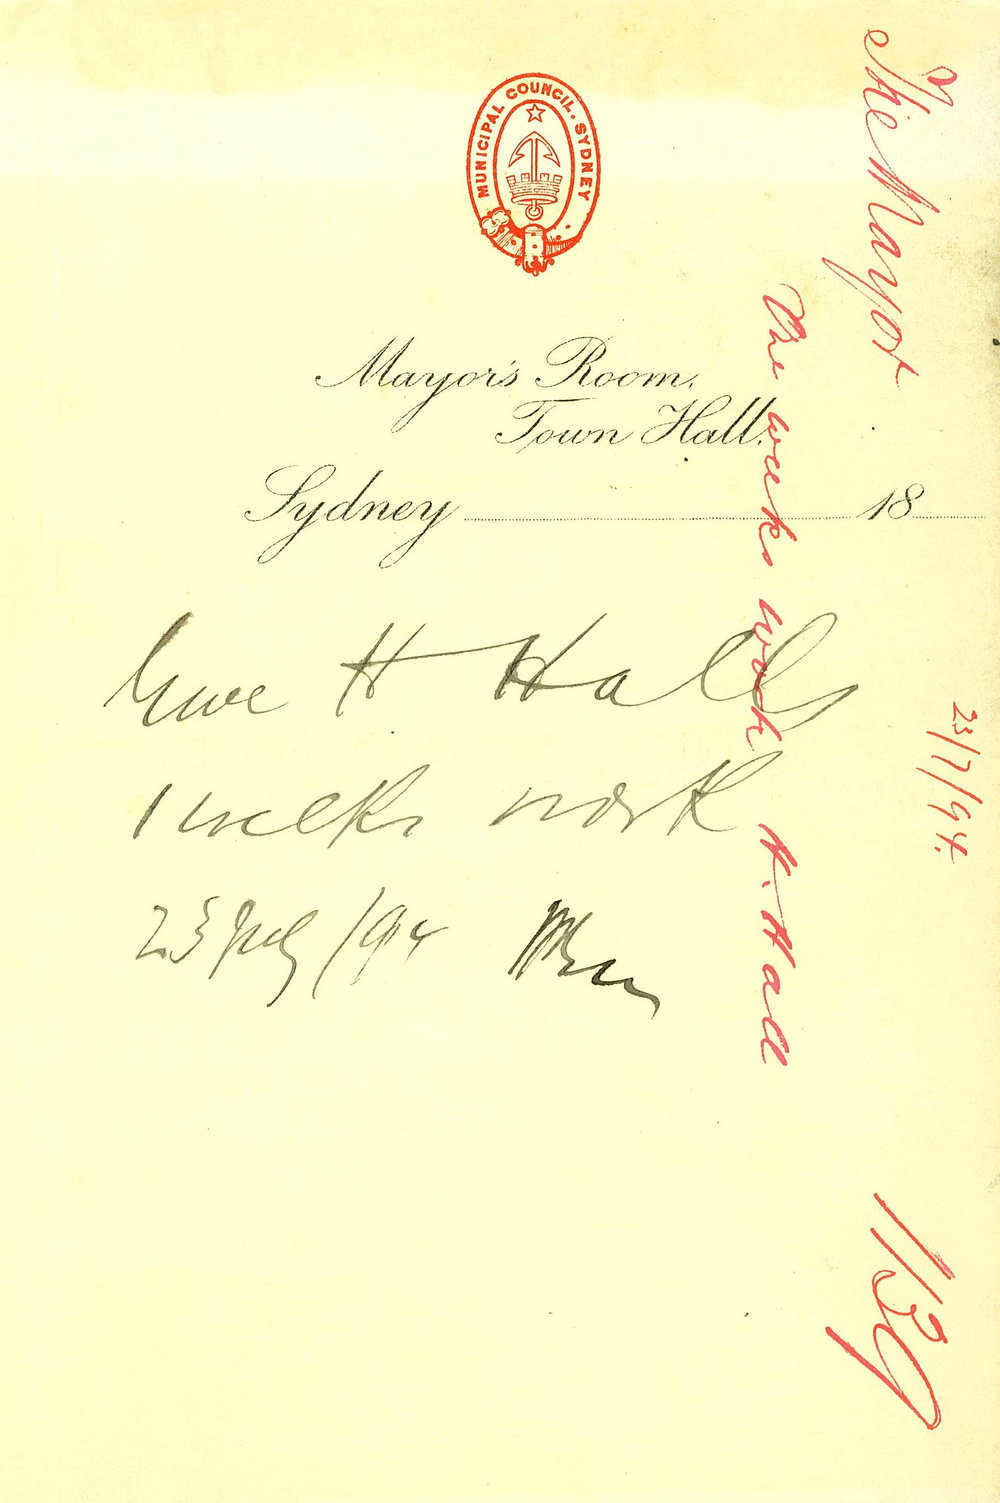 MUNICIPAL COUNCIL. SYDNEY
Mayor's Room,
Town Hall.
Sydney 18
Give H Hall
1 weeks work
23 July /94
The Mayor
One weeks work H. Hall
23/7/94.
1139